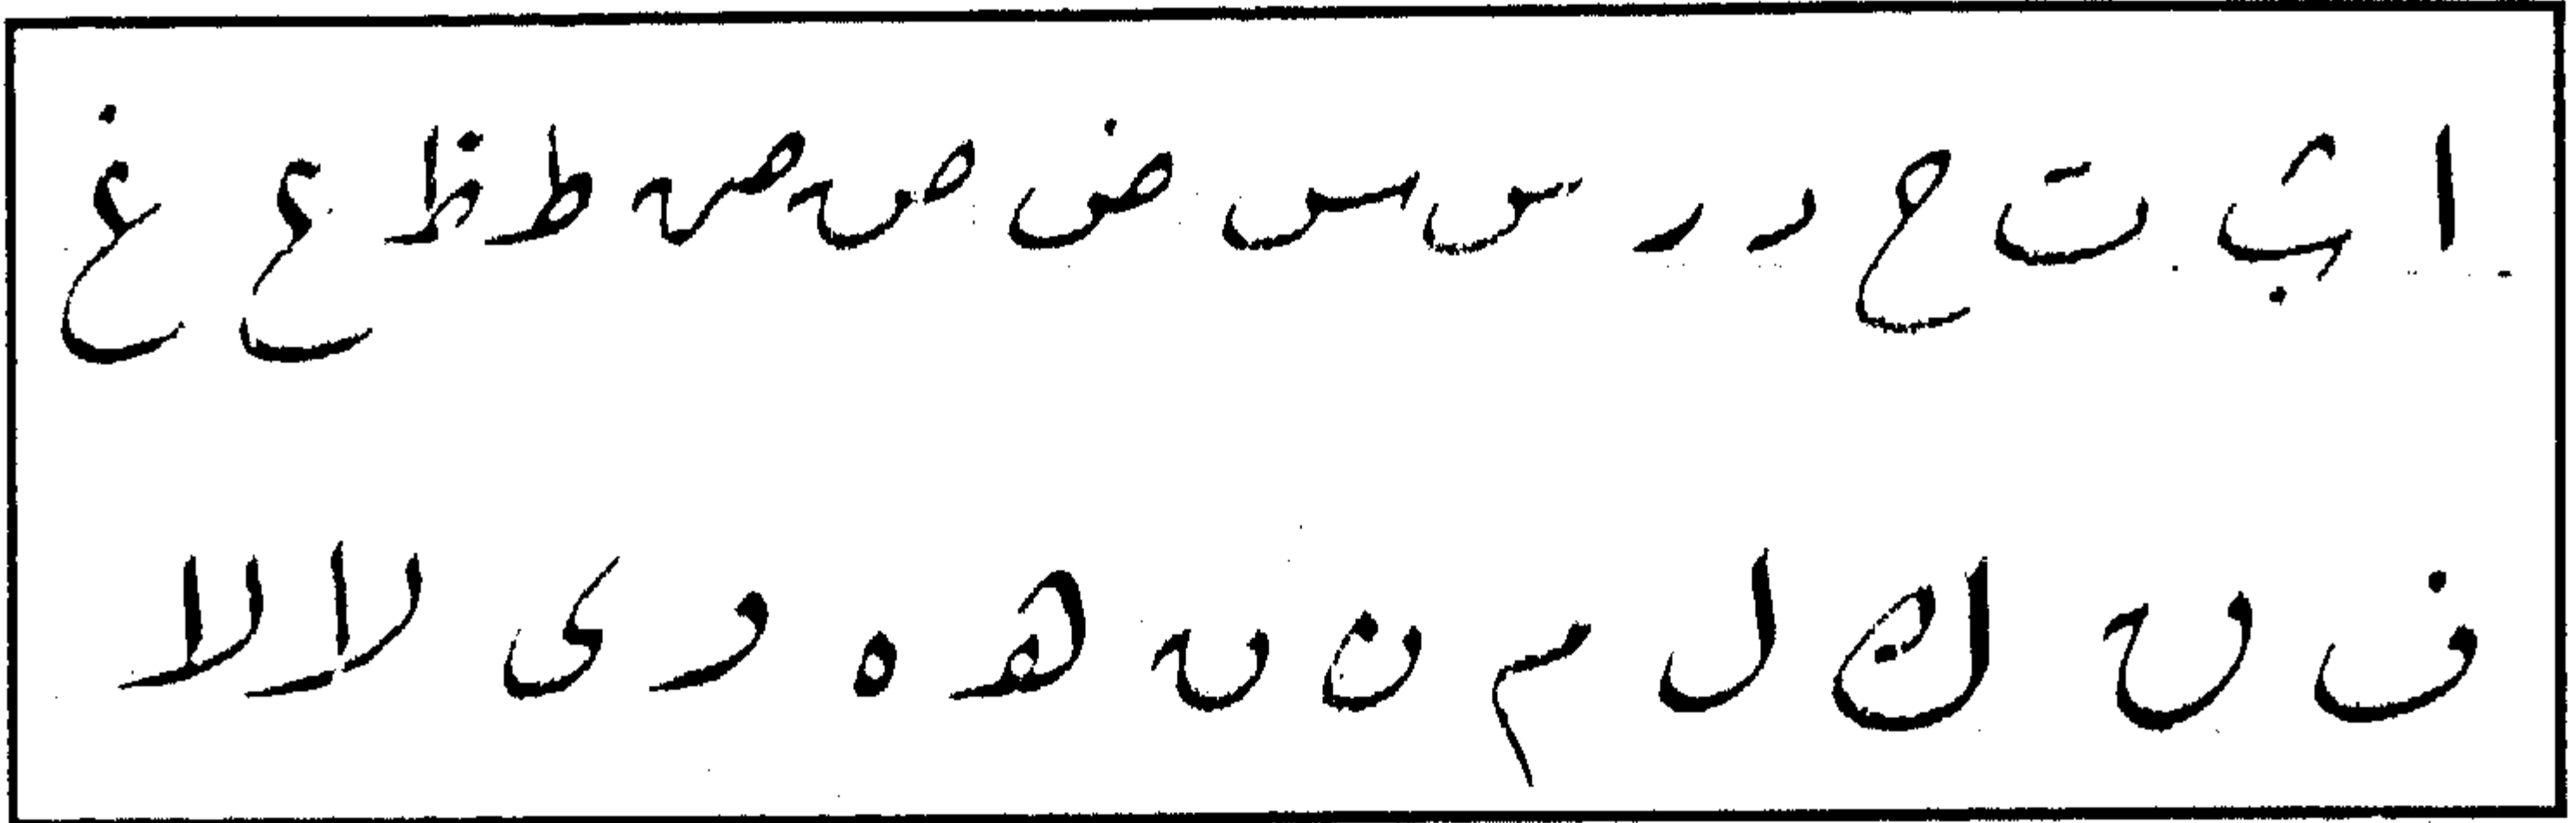 ا ب ت ح د ر س س ض ص ص ط ظ ع غ
ف ں ك ل م ن ں ه ه و ى لا لا